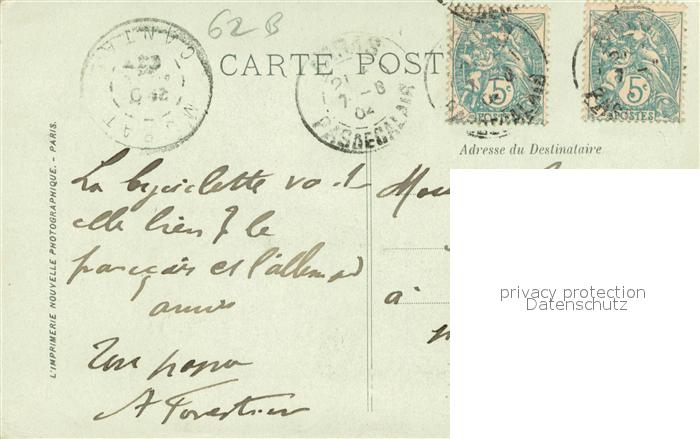 62B
CARTE POST
CANTAL
MURAT
PAS DE CALAIS
21
7 - 8
04
5c
POSTES
5c
POSTES
Adresse du Destinataire
L'IMPRIMERIE NOUVELLE PHOTOGRAPHIQUE. - PARIS.
La byciclette va-t-
elle bien & le
français et l'allemand
aussi
Ton papa
A Forestier
à
privacy protection
Datenschutz